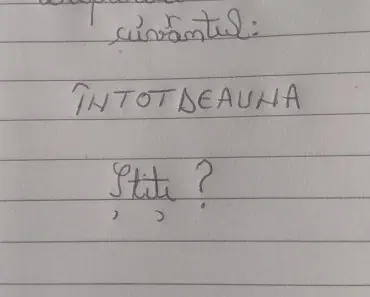 cuvântul:
ÎNTOTDEAUNA
Știți ?